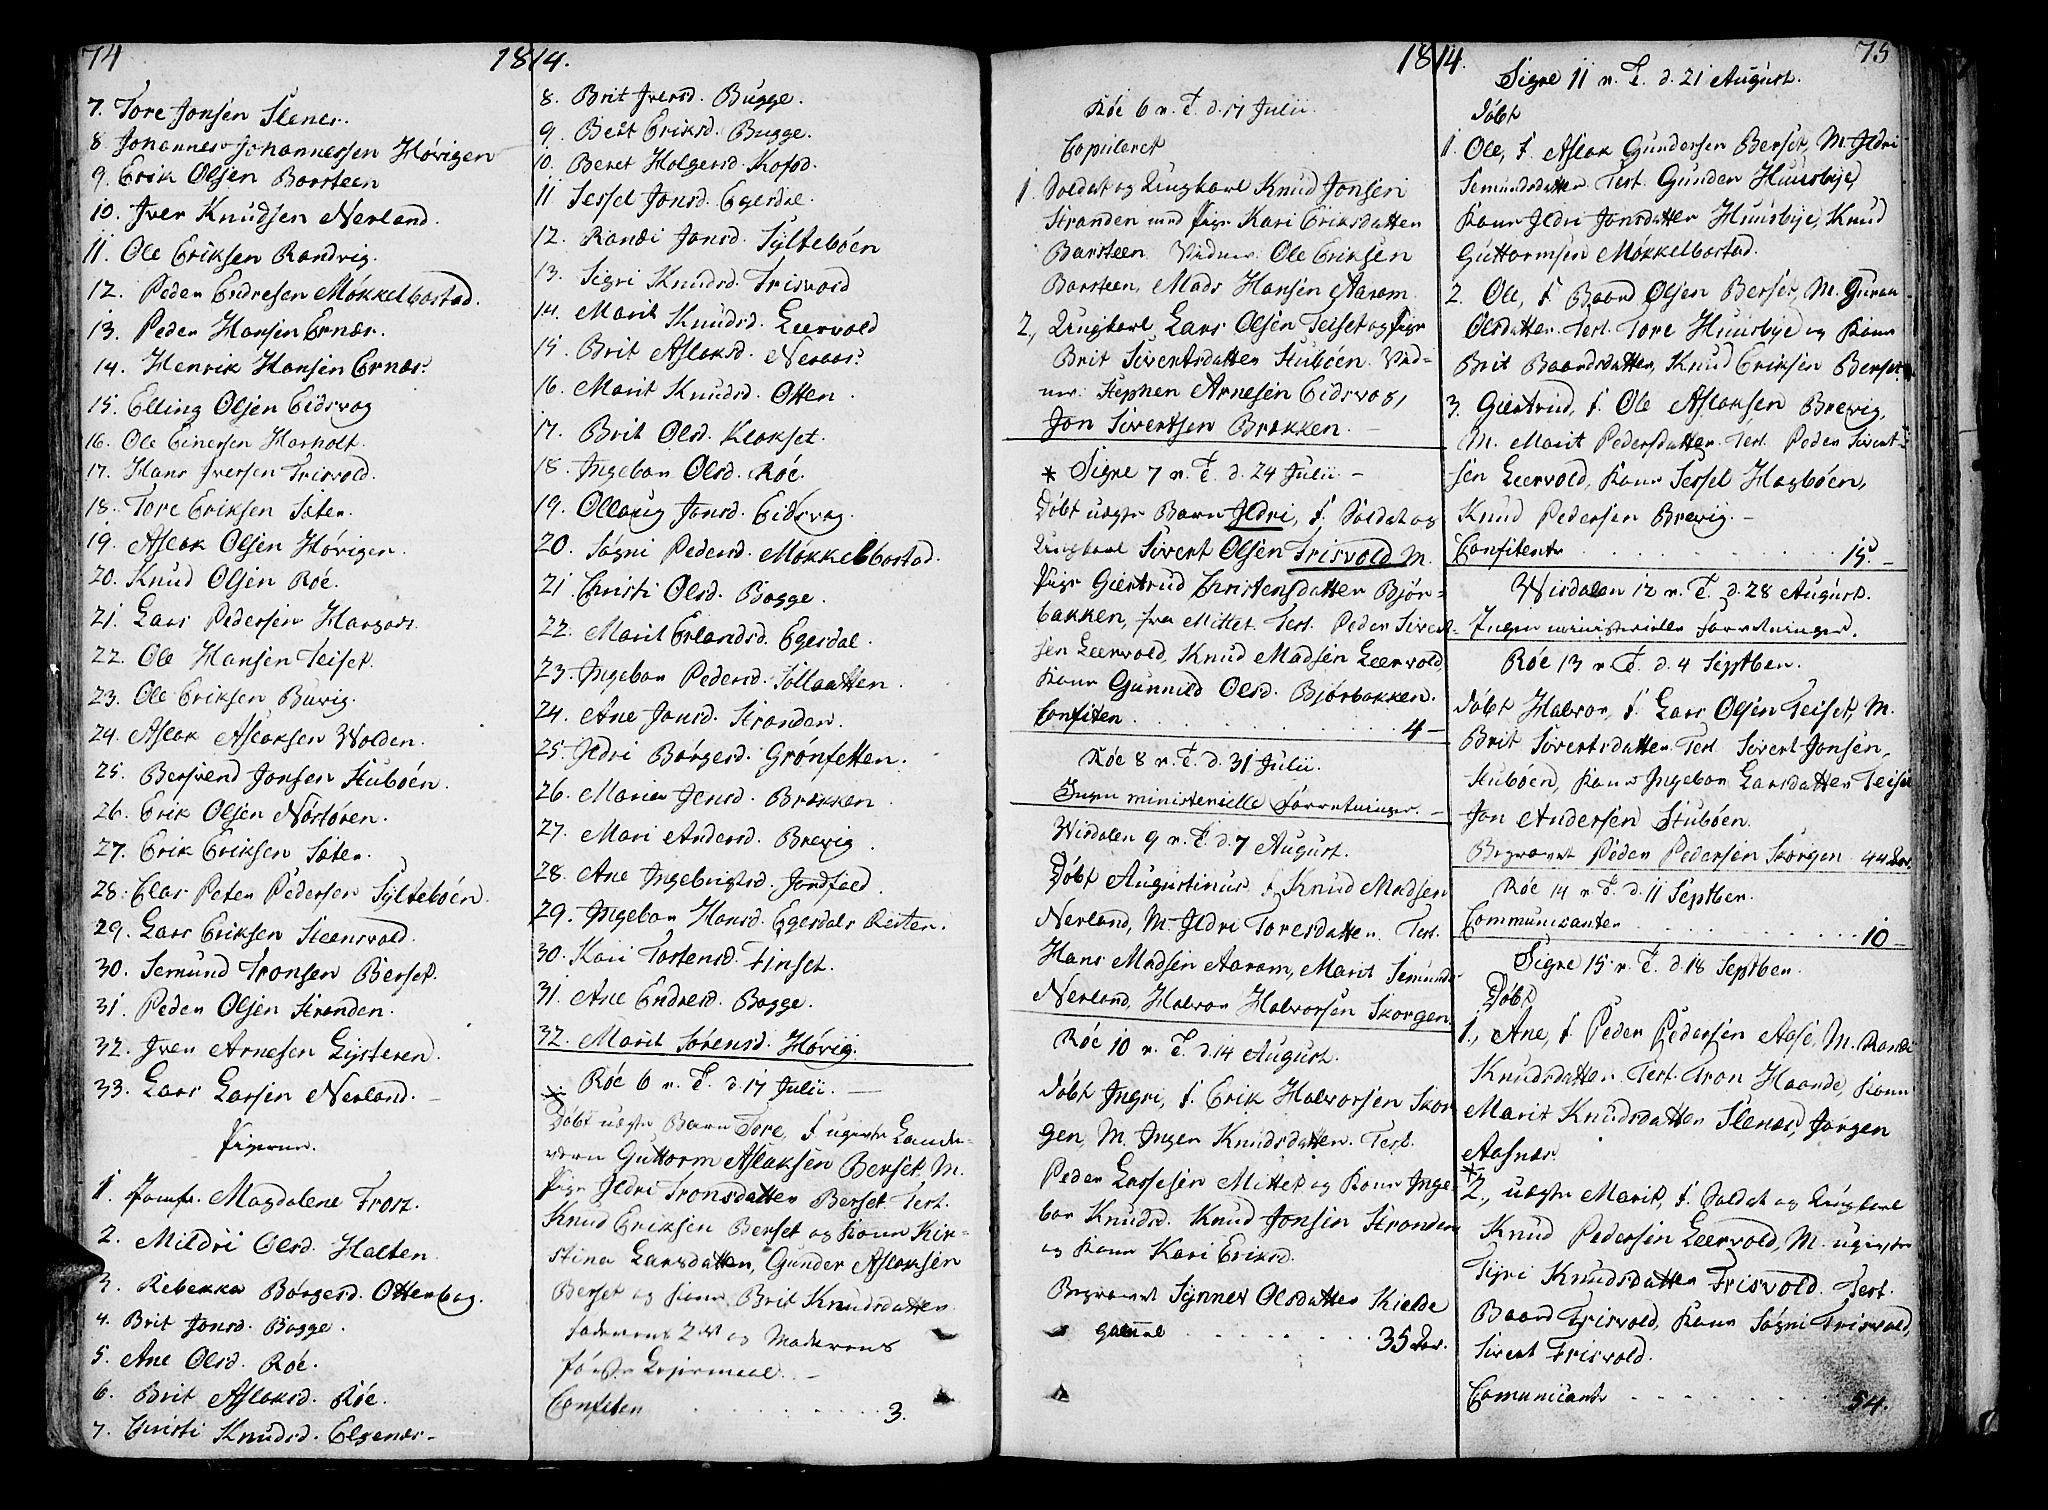 74
1814.
7. Tore Jonsen Slenes.
8 Johannes Johannessen Hovigen
9. Erik Olsen Barsteen
10. Iver Knudsen Nerland.
11. Ole Eriksen Randvig.
12. Peder Endresen Møkkelbostad.
13. Peder Hansen Ernæs.
14. Henrik Hansen Ernæs.
15. Elling Olsen Eidsvog
16. Ole Einersen Harholt.
17. Hans Iversen Trisvold.
18. Tore Eriksen Sæter.
19. Aslak Olsen Høvigen.
20. Knud Olsen Røe.
21. Lars Pedersen
22. Ole Hansen Teiset.
23. Ole Eriksen Buvig.
24. Aslak Aslaksen Wolden.
25. Bersvend Jonsen Stubøen.
26. Erik Olsen Nørstøren.
27. Erik Eriksen Sæter.
28. Clas Peter Pedersen Syltebøen.
29. Lars Eriksen Steensvold.
30. Semund Tronsen Berset.
31. Peder Olsen Stranden.
32. Iver Arnesen Lysteren.
33. Lars Larsen Nerland.
Pigerne.
1. Jomfr. Magdalene Frost.
2. Mildri Olsd. Halten.
3. Rebekka Børgesd. Otterbog.
4. Brit Jonsd. Bogge.
5. Ane Olsd. Røe.
6. Brit Aslaksd. Røe.
7. Christi Knudsd. Elgenæs.
8. Brit Iversd. Bugge.
9. Berit Eriksd. Bugge.
10. Beret Holgersd. Kofod.
11 Sessel Jonsd. Egesdal.
12. Randi Jonsd. Syltebøen
13. Sigri Knudsd. Trisvold
14. Marit Knudsd. Leervold
15. Brit Aslaksd. Neraas.
16. Marit Knudsd. Otten.
17. Brit Olsd. Klokset.
18. Ingebor Olsd. Røe.
19. Ollaug Jonsd. Eidsvog.
20. Søgni Pedersd. Møkkelbostad.
21. Christi Olsd. Bogge.
22. Marit Erlandsd. Egesdal.
23. Ingebor Pedersd.
24. Ane Jonsd. Stranden.
25. Ildri Børgesd. Grønsetten.
26. Maria Jensd. Brækken.
27. Mari Andersd. Brevig.
28. Ane Ingebrigtsd. Jordfald.
29. Ingebor Hansd. Egesdals Reiten.
30. Kari Torstensd. Finset.
31. Ane Endresd. Bogge.
32. Marit Sørensd. Høvig.
Røe 6 n. T. d. 17 Julii.
Døbt uægte Barn Tore, f. ugivte Lande-
værn Guttorm Aslaksen Berset, M.
Pige Ildri Tronsdatter Berset. Test.
Knud Eriksen Berset og Kone Kir-
stina Larsdatter, Gunder Aslaksen
Berset og Kone Brit Knudsdatter.
Faderens 2det og Moderens
første Lejermaal.
Confiten 3.
1814.
75
Røe 6 n. T. d. 17 Julii
Copuleret
1. Soldat og Ungkarl Knud Jonsen
Stranden med Pige Kari Eriksdatter
Barsteen. Vidner. Ole Eriksen
Barsteen, Mads Hansen Aaram.
2, Ungkarl Lars Olsen Teiset og Pige
Brit Sivertsdatter Stubøen. Vid-
ner. Stephen Arnesen Eidsvog,
Jon Sivertsen Brækken.
* Sigre 7 n. T. d. 24 Julii
Døbt uægte Barn Ildri, f. Soldat og
Ungkarl Sivert Olsen Trisvold M.
Pige Giertrud Christensdatter Bjør-
bakken, fra Mittet. Test. Peder Sivert-
sen Leervold, Knud Madsen Leervold,
Kone Gunnild Olsd. Bjørbakken.
Confiten. 4
Røe 8 n. T. d. 31 Julii.
Ingen ministerielle Forretninger.
Wisdalen 9 n. T. d. 7 August.
Døbt Augustinus f. Knud Madsen
Nerland, M. Ildri Toresdatter. Test.
Hans Madsen Aaram, Marit Semunds
Nerland, Halvor Halvorsen Skorgen
Røe 10 n. T. d. 14 August.
Døbt Ingri, f. Erik Halvorsen Skor
gen, M. Inger Knudsdatter. Test.
Peder Larsesen Mittet og Kone Inge
bor Knudsd. Knud Jonsen Stranden
og Kone Kari Eriksd.
Begravet Synnev Olsdatter Kielde
gammel 35 Aar.
Sigre 11 n. T. d. 21 August.
Døbt
1. Ole, f. Aslak Gundersen Berset, M. Ildri
Semundsdatter. Test. Gunder Huusbye,
Kone Ildri Jonsdatter Huusbye, Knud
Guttormsen Møkkelbostad.
2. Ole, f. Baard Olsen Berset, M. Guran
Olsdatter. Test. Tore Huusbye og Kone
Brit Baardsdatter, Knud Eriksen Berset.
3. Giertrud, f. Ole Aslaksen Brevig,
M. Marit Pedersdatter. Test. Peder Sivert-
sen Leervold, Kone Sessel Hagbøen,
Knud Pedersen Brevig.
Confitente 15.
Wisdalen 12 n. T. d. 28 August.
Ingen ministerielle Forretninger.
Røe 13 n. T. d. 4 Septber.
Døbt Halvor, f. Lars Olsen Teiset, M.
Brit Sivertsdatter. Test. Sivert Jonsen,
Stubøen, Kone Ingebor Larsdatter Teiset
Jon Andersen Stubøen.
Begravet Peder Pedersen Skorgen 44 Aar.
Røe 14 n. T. d. 11 Septber.
Communicanter 10
Sigre 15 n. T. d. 18 Septber.
Døbt
1., Ane, f. Peder Pedersen Aase, M. Randi
Knudsdatter. Test. Tron Haande, Kone
Marit Knudsdatter Slenæs, Jørgen
Aasnæs.
*
2., uægte Marit, f. Soldat og Ungkarl
Knud Pedersen Leervold, M. ugivte
Sigri Knudsdatter Trisvold. Test.
Baard Trisvold, Kone Søgni Trisvold,
Sivert Trisvold.
Comunicante 54.